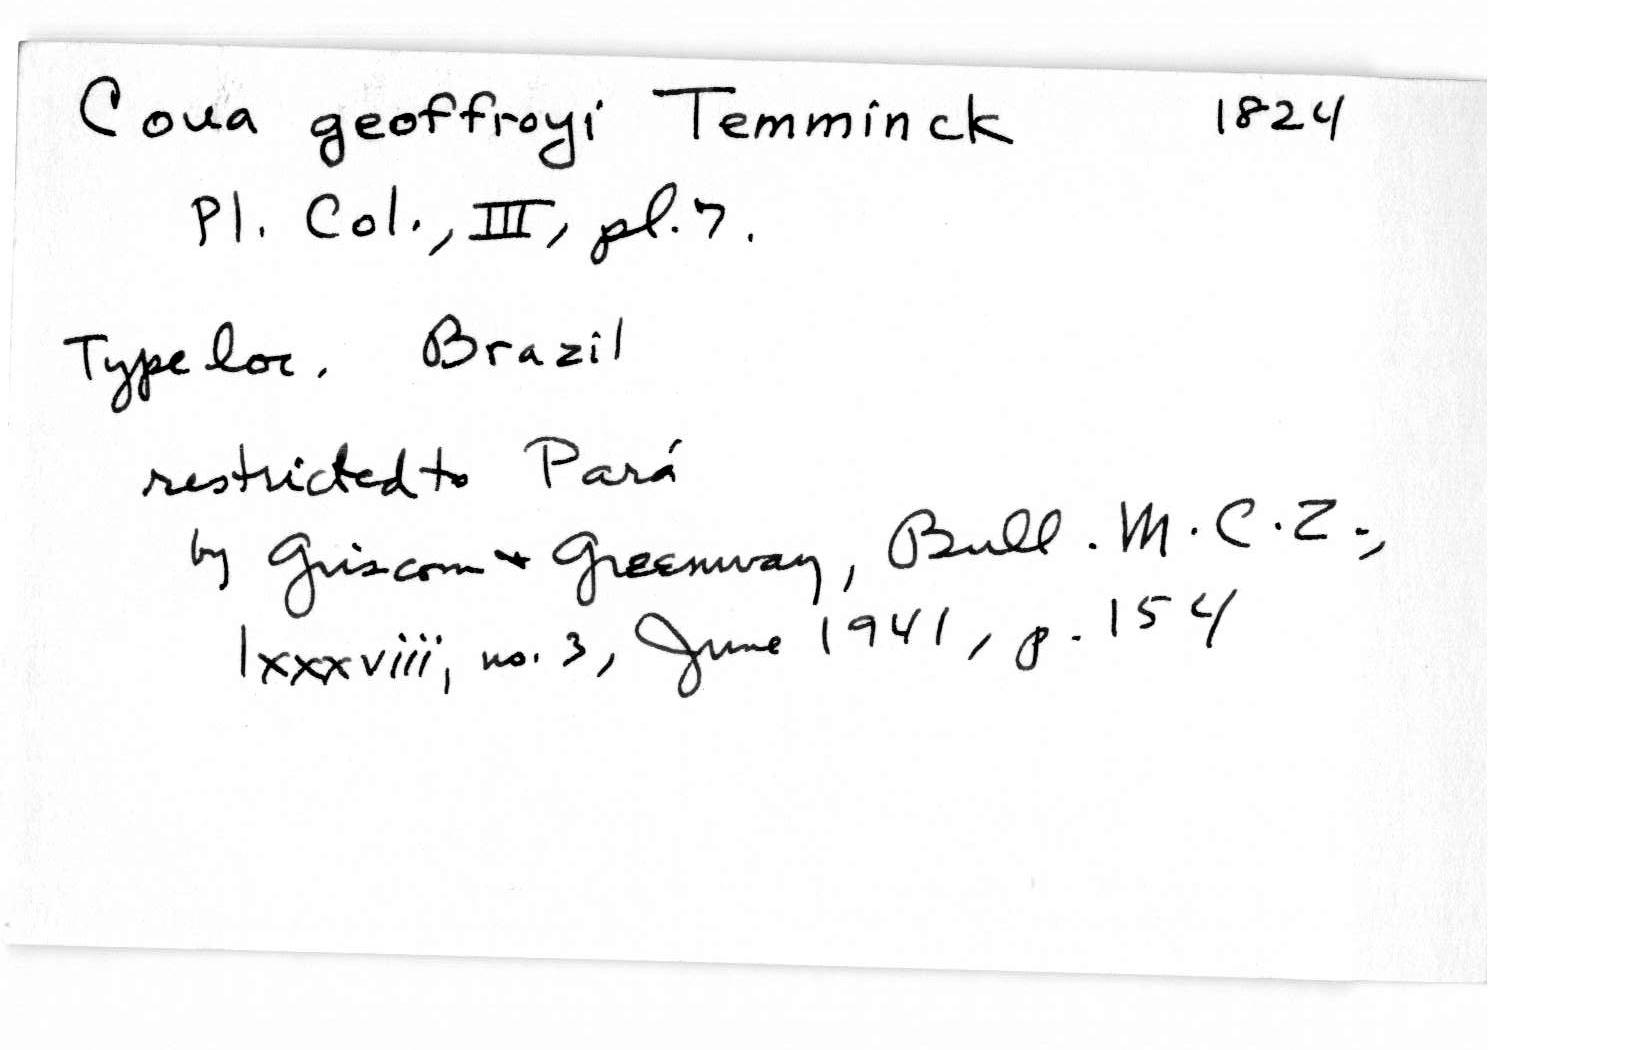 Coua geoffroyi Temminck 1824
Pl. Col., III, pl. 7.
Type loc. Brazil
restricted to Pará
by Griscom + Greenway, Bull. M.C.Z.,
lxxxviii, no. 3, June 1941, p. 154